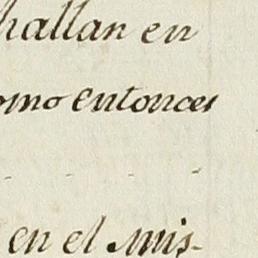 hallan en
omo entonces
- - - -
en el mis-